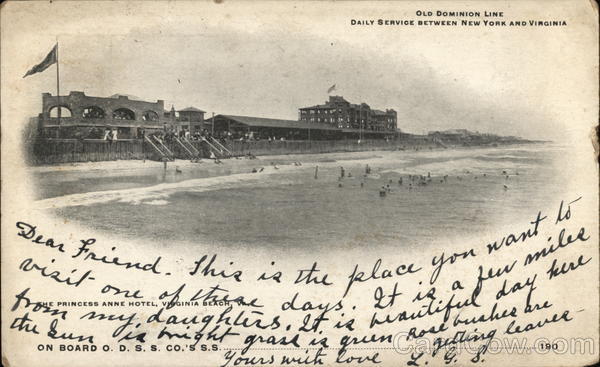 OLD DOMINION LINE
DAILY SERVICE BETWEEN NEW YORK AND VIRGINIA
Dear Friend. This is the place you want to
visit one of these days. It is a few miles
THE PRINCESS ANNE HOTEL, VIRGINIA BEACH, VA.
from my daughters. It is beautiful day here
the sun is bright grass is green Rose bushes are
getting leaves-
ON BOARD O. D. S. S. CO.'S S.S. 190
Yours with love L. G. S.
CardCow.com